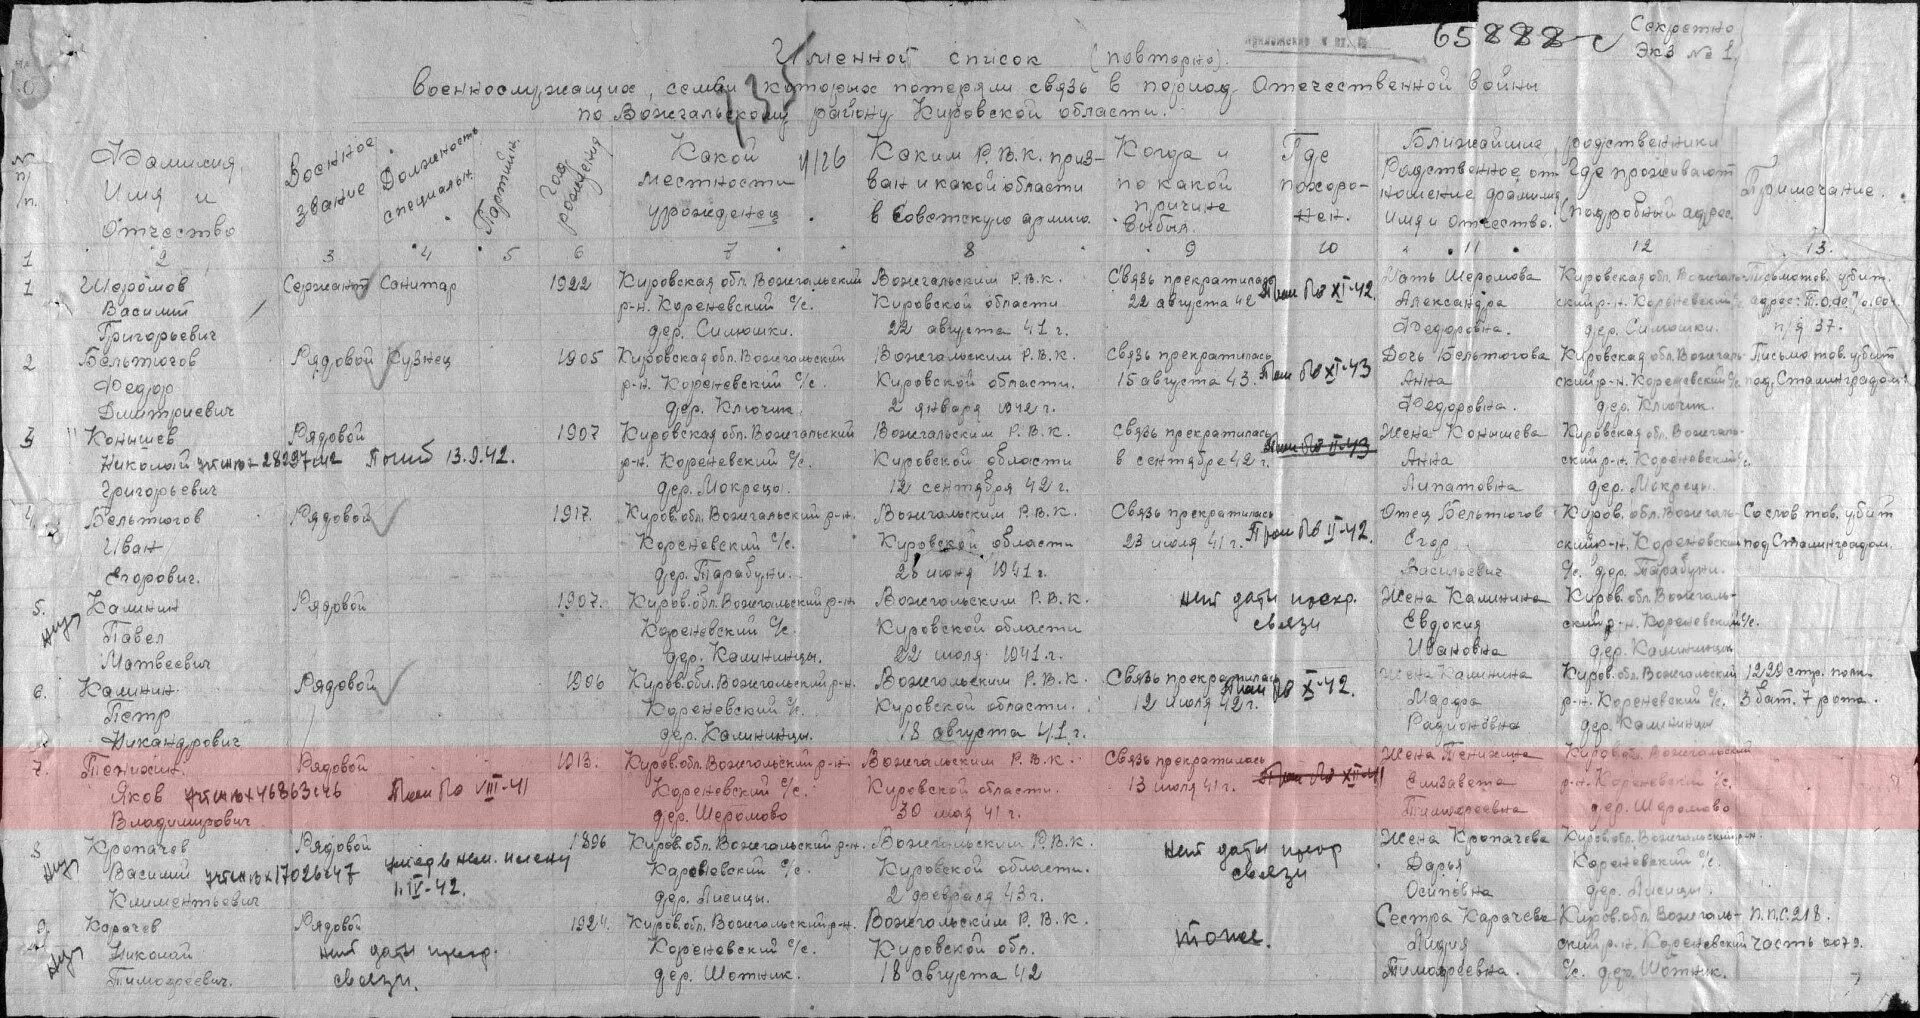 65888с
Секретно
Экз № 1.
Именной список (повторно).
военнослужащих, семьи которых потеряли связь в период Отечественной войны
по Вожгальскому району Кировской области.
№ п/п.
Фамилия, Имя и Отчество
Военное звание
Должность специальн.
Партийн.
Год рождения
Какой местности урожденец
Каким Р.В.К. призван и какой области в Советскую армию.
Когда и по какой причине выбыл.
Где похоронен.
Ближайшие родственники
Родственное отношение фамилия Имя и отчество.
Где проживают (подробный адрес.
Примечание.
1 2 3 4 5 6 7 8 9 10 11 12 13.
1 Шеромов Сержант Санитар 1922 Кировская обл. Вожгальский Вожгальским Р.В.К. Связь прекратилась Мать Шеромова Кировская обл. Вожгаль- Письмо тов. убит.
Василий р-н. Кореневский с/с. Кировской области 22 августа 42 Проп б/в XI-42. Александра ский р-н. Кореневский с/с
Григорьевич дер. Силюшки. 22 августа 41 г. Федоровна. дер. Силюшки. п/я 37.
2 Бельтюгов Рядовой Кузнец 1905 Кировская обл. Вожгальский Вожгальским Р.В.К. Связь прекратилась Дочь Бельтюгова Кировская обл. Вожгаль- Письмо тов. убит
Федор р-н. Кореневский с/с. Кировской области. 15 августа 43. Проп б/в XI-43 Анна ский р-н. Кореневский с/с под Сталинградом.
Дмитриевич дер. Ключик. 2 января 1942 г. Федоровна. дер. Ключик.
3 Конышев Рядовой 1907 Кировская обл. Вожгальский Вожгальским Р.В.К. Связь прекратилась Жена Конышева Кировская обл. Вожгаль-
Николай 28297 Погиб 13.9.42. р-н. Кореневский с/с. Кировской области в сентябре 42 г. Анна ский р-н. Кореневский с/с.
Григорьевич дер. Мокрецы. 12 сентября 42 г. Липатовна дер. Мокрецы.
4 Бельтюгов Рядовой 1917. Киров. обл. Вожгальский р-н. Вожгальским Р.В.К. Связь прекратилась Отец Бельтюгов Киров. обл. Вожгаль- Со слов тов. убит
Иван Кореневский с/с. Кировской области 23 июля 41 г. Проп б/в II-42. Егор ский р-н. Кореневский под Сталинградом.
Егорович. дер. Тарабуни. 26 июня 1941 г. Васильевич с/с. дер. Тарабуни.
5. Калинин Рядовой 1907. Киров. обл. Вожгальский р-н Вожгальским Р.В.К. нет даты прекр. Жена Калинина Киров. обл. Вожгаль-
Павел Кореневский с/с. Кировской области связи Евдокия ский р-н. Кореневский с/с.
Матвеевич дер. Калининцы. 22 июля 1941 г. Ивановна дер. Калининцы
6. Калинин Рядовой 1906 Киров. обл. Вожгальский р-н. Вожгальским Р.В.К. Связь прекратилась Жена Калинина Киров. обл. Вожгальский 1229 стр. полк.
Петр Кореневский с/с. Кировской области. 12 июля 42 г. Проп б/в X-42. Марфа р-н. Кореневский с/с. 3 бат. 7 рота.
Никандрович дер. Калининцы. 18 августа 41 г. Радионовна дер. Калининцы
7. Пенихин Рядовой 1913. Киров. обл. Вожгальский р-н. Вожгальским Р.В.К. Связь прекратилась Жена Пенихина Киров. обл. Вожгальский
Яков Проп б/в VIII-41 Кореневский с/с. Кировской области. 13 июля 41 г. Елизавета р-н. Кореневский с/с.
Владимирович дер. Шеромово 30 мая 41 г. Тимофеевна дер. Шеромово
8 Кропачев Рядовой 1896 Киров. обл. Вожгальский р-н. Вожгальским Р.В.К. нет даты прекр Жена Кропачева Киров. обл. Вожгальский р-н.
Василий умер в нем. плену Кореновский с/с. Кировской области. связи Дарья Кореневский с/с.
Климентьевич 1.IV-42. дер. Лисицы. 2 февраля 43 г. Осиповна дер. Лисицы.
9. Карачев Рядовой 1924. Киров. обл. Вожгальский р-н. Вожгальским Р.В.К. тоже. Сестра Карачева Киров. обл. Вожгаль- П.П.С. 218.
Николай нет даты прекр. Кореневский с/с. Кировской обл. Лидия ский р-н. Кореневский часть 0079.
Тимофеевич. связи. дер. Шотник. 18 августа 42 Тимофеевна. с/с. дер. Шотник.